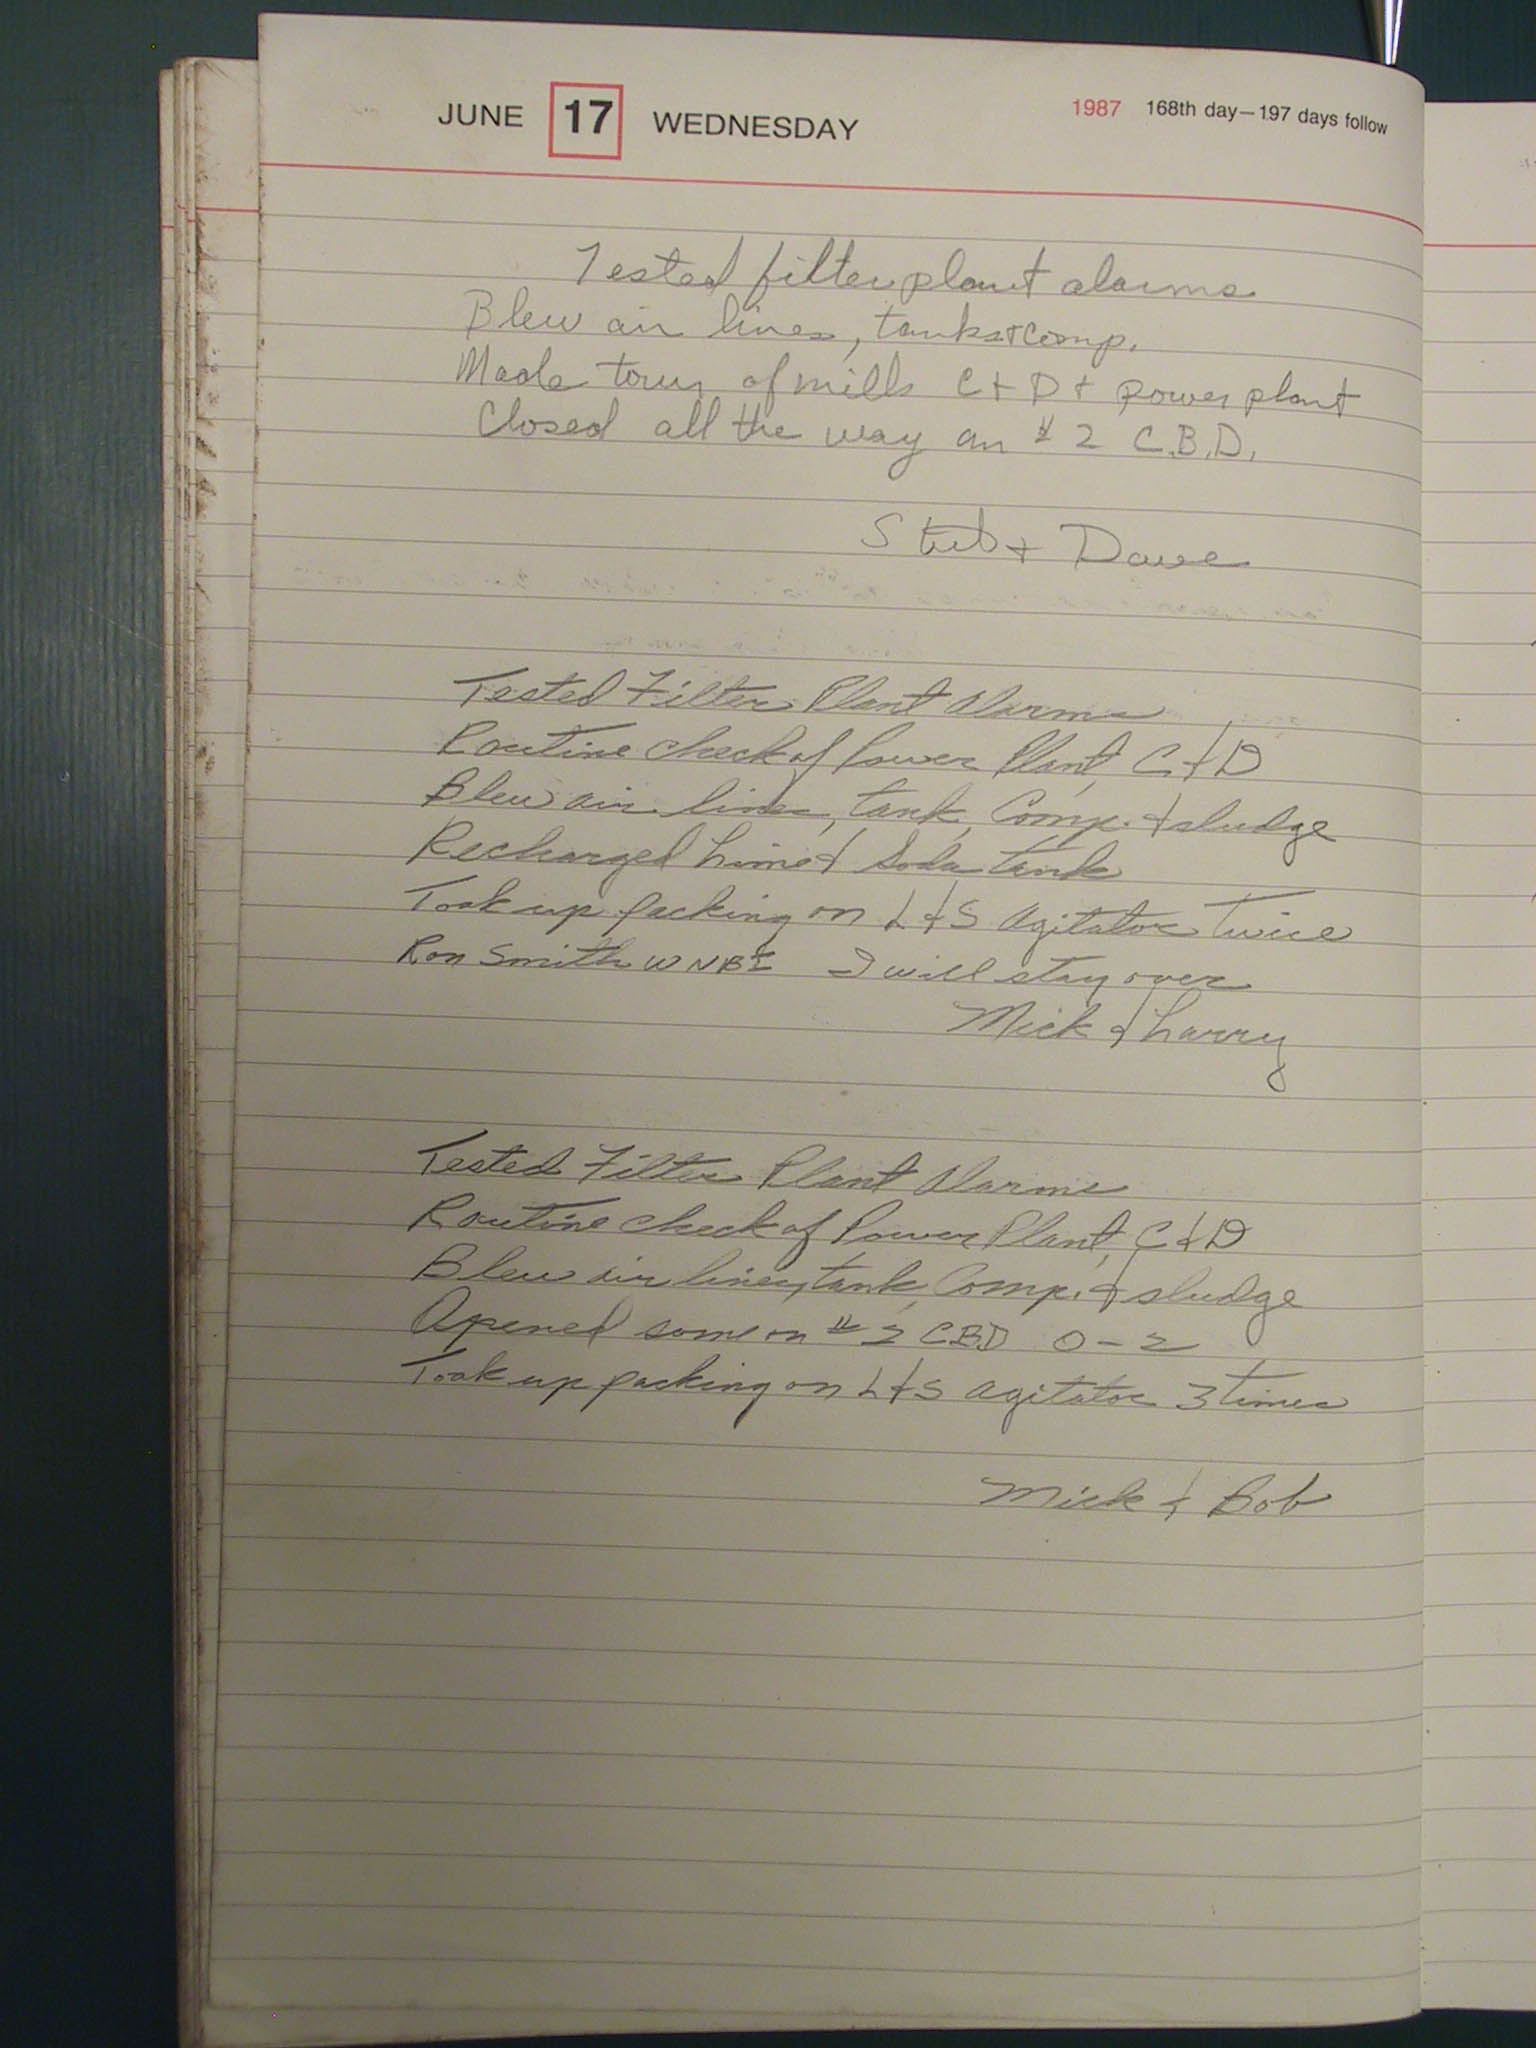 JUNE 17 WEDNESDAY 1987 168th day—197 days follow
Tested filter plant alarms
Blew air lines, tanks + Comp.
Made tour of mills C + D + power plant
Closed all the way on # 2 C.B.D.
Steb + Dave
Tested Filter Plant Alarms
Routine check of Power Plant, C & D
Blew air lines, tank, Comp. & sludge
Recharged Lime & Soda tank
Took up packing on L & S agitator Twice
Ron Smith WNBI I will stay over
Mick & Larry
Tested Filter Plant Alarms
Routine check of Power Plant, C & D
Blew air lines, tank, Comp. & sludge
Opened some on # 2 CBD 0-2
Took up packing on L & S agitator 3 times
Mick & Bob